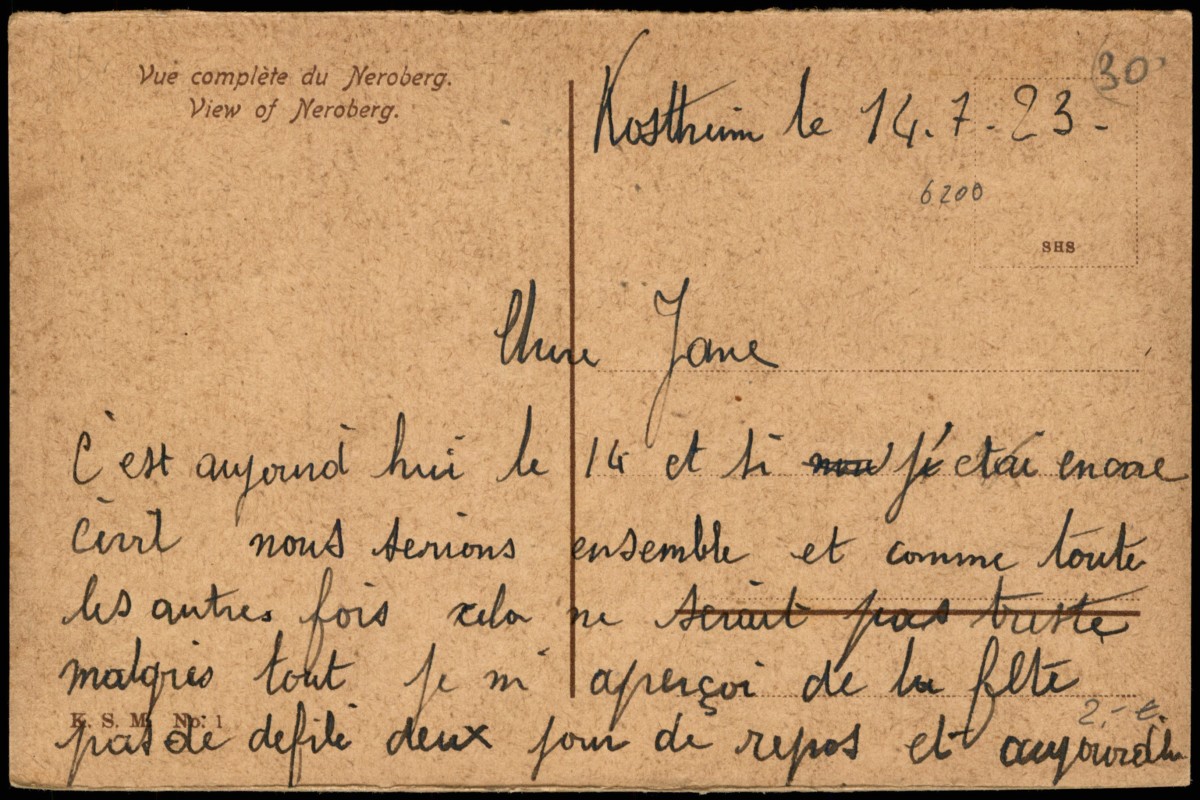 Vue complète du Neroberg.
View of Neroberg.
30
Kostheim le 14.7.23.
6200
SHS
Chere Jane
C'est aujourd'hui le 14 et si j'etai encore
civil nous serions ensemble et comme toute
les autres fois cela ne serait pas triste
malgres tout je m'aperçoi de la fête
2.- €
K. S. M. No: 1
pas de defile deux jour de repos et aujourdhu